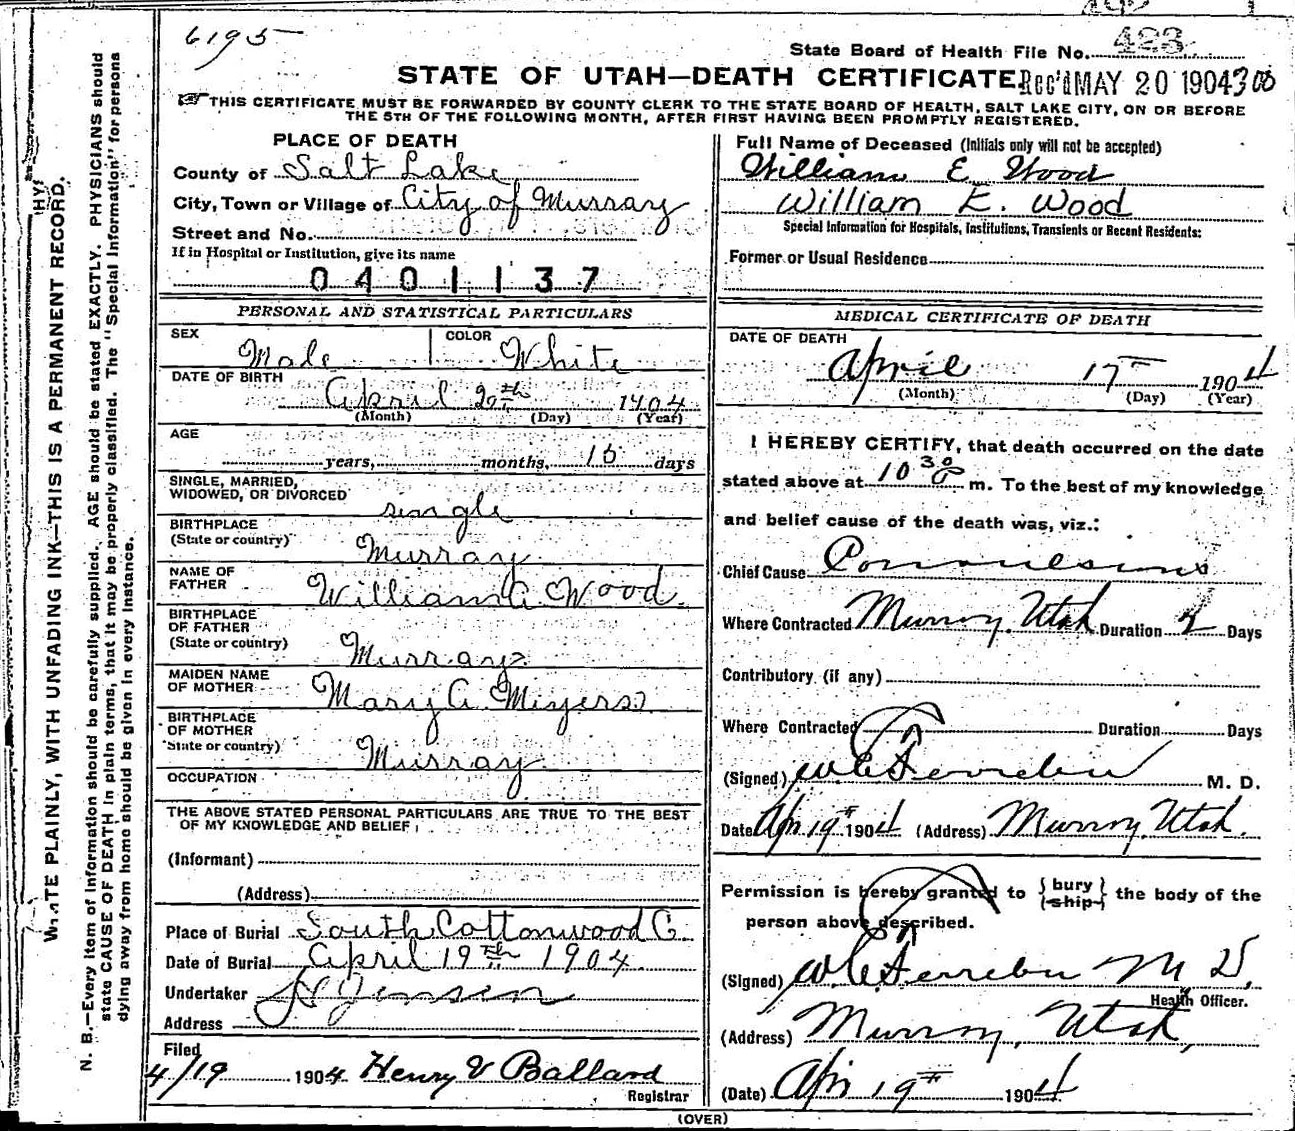 6195
State Board of Health File No. 423
STATE OF UTAH—DEATH CERTIFICATE. Rec'd MAY 20 1904 300
THIS CERTIFICATE MUST BE FORWARDED BY COUNTY CLERK TO THE STATE BOARD OF HEALTH, SALT LAKE CITY, ON OR BEFORE
THE 5TH OF THE FOLLOWING MONTH, AFTER FIRST HAVING BEEN PROMPTLY REGISTERED.
WRITE PLAINLY, WITH UNFADING INK—THIS IS A PERMANENT RECORD.
N. B.—Every item of information should be carefully supplied. AGE should be stated EXACTLY. PHYSICIANS should
state CAUSE OF DEATH in plain terms, that it may be properly classified. The "Special Information" for persons
dying away from home should be given in every instance.
PLACE OF DEATH
County of Salt Lake
City, Town or Village of City of Murray
Street and No.
If in Hospital or Institution, give its name
0401137
PERSONAL AND STATISTICAL PARTICULARS
SEX COLOR
Male White
DATE OF BIRTH
April 2nd 1904
(Month) (Day) (Year)
AGE
years, months, 15 days
SINGLE, MARRIED,
WIDOWED, OR DIVORCED
single
BIRTHPLACE
(State or country)
Murray
NAME OF
FATHER
William A Wood
BIRTHPLACE
OF FATHER
(State or country)
Murray
MAIDEN NAME
OF MOTHER
Mary A. Miyers
BIRTHPLACE
OF MOTHER
(State or country)
Murray
OCCUPATION
THE ABOVE STATED PERSONAL PARTICULARS ARE TRUE TO THE BEST
OF MY KNOWLEDGE AND BELIEF
(Informant)
(Address)
Place of Burial South Cottonwood C.
Date of Burial April 19th 1904
Undertaker Jensen
Address
Filed
4/19 1904 Henry V Ballard
Registrar
Full Name of Deceased (Initials only will not be accepted)
William E Wood
William E. Wood
Special Information for Hospitals, Institutions, Transients or Recent Residents:
Former or Usual Residence
MEDICAL CERTIFICATE OF DEATH
DATE OF DEATH
April 17th 1904
(Month) (Day) (Year)
I HEREBY CERTIFY, that death occurred on the date
stated above at 10 30 m. To the best of my knowledge
and belief cause of the death was, viz.:
Chief Cause Convulsions
Where Contracted Murray, Utah Duration 2 Days
Contributory (if any)
Where Contracted Duration Days
(Signed) W C Ferrebu M. D.
Date Apr 19th 1904 (Address) Murray, Utah.
Permission is hereby granted to {bury ship} the body of the
person above described.
(Signed) W C Ferrebu M D,
Health Officer.
(Address) Murray, Utah,
(Date) Apr 19th 1904
(OVER)